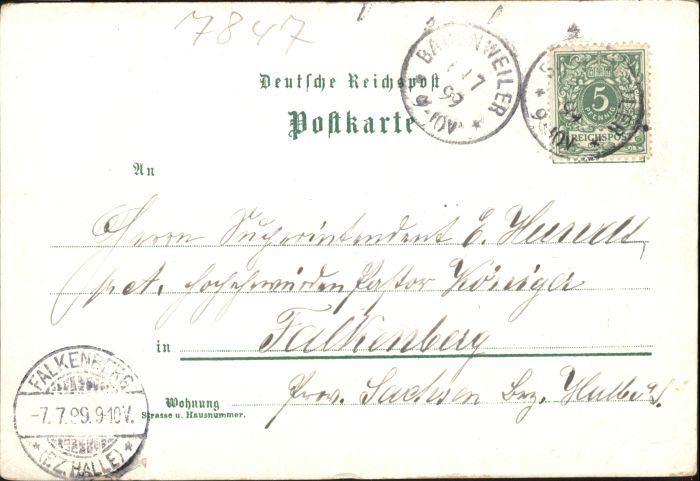 7847
BADENWEILER
7 99
5
PFENNIG
REICHSPOST
Deutsche Reichspost
Postkarte
An
Herrn Superintendent E.
p. A. hochehrwürden Pastor König
in Falkenberg
Prov. Sachsen Bez. Halle a/S.
Wohnung
Strasse u. Hausnummer.
FALKENBERG
-7.7.99.9-10V.
* (BZ. HALLE) *